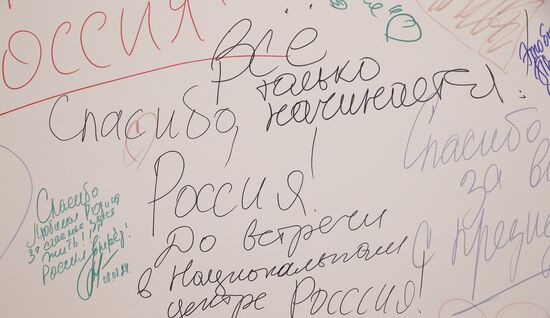 Россия
Всё
только
начинается!
Спасибо,
Россия!
До встречи
в Национальном
центре Росссия!
Спасибо
за в
с през
Спасибо
Любимая Родина
за счастье здесь
жить!
Россия вперёд!